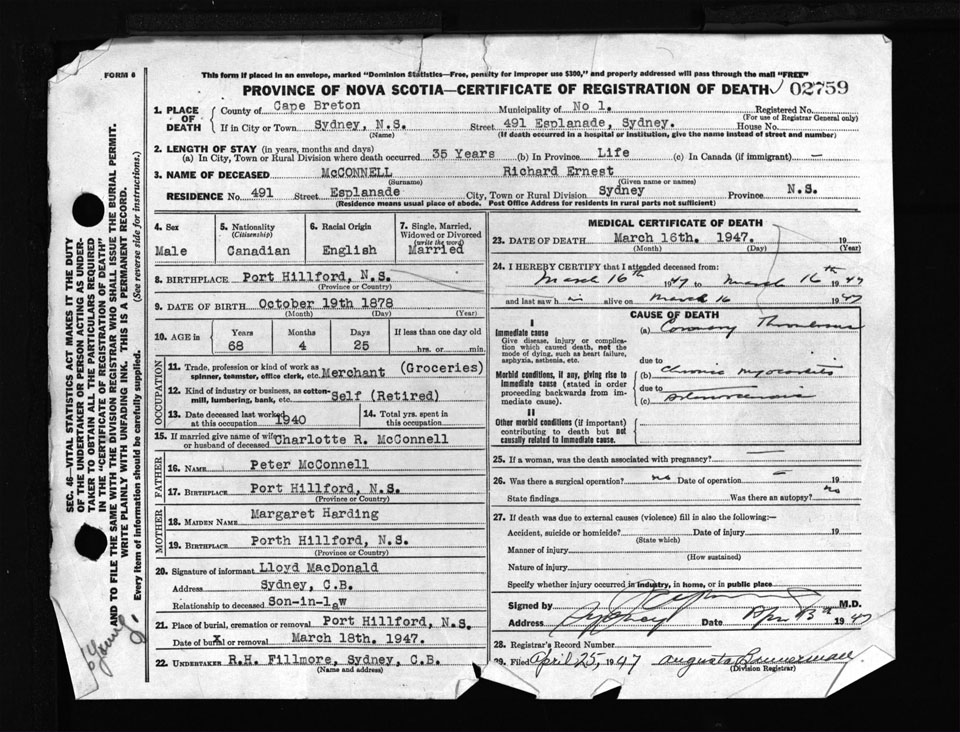 FORM 6
This form if placed in an envelope, marked "Dominion Statistics—Free, penalty for improper use $300," and properly addressed will pass through the mail "FREE"
PROVINCE OF NOVA SCOTIA—CERTIFICATE OF REGISTRATION OF DEATH 02759
1. PLACE OF DEATH
County of Cape Breton Municipality of No 1. Registered No.
(For use of Registrar General only)
If in City or Town Sydney, N.S. Street 491 Esplanade, Sydney. House No.
(Name) (If death occurred in a hospital or institution, give the name instead of street and number)
2. LENGTH OF STAY (in years, months and days)
(a) In City, Town or Rural Division where death occurred 35 Years (b) In Province Life (c) In Canada (if immigrant) —
3. NAME OF DECEASED McCONNELL Richard Ernest
(Surname) (Given name or names)
RESIDENCE No. 491 Street Esplanade City, Town or Rural Division Sydney Province N.S.
(Residence means usual place of abode. Post Office Address for residents in rural parts not sufficient)
4. Sex 5. Nationality (Citizenship) 6. Racial Origin 7. Single, Married, Widowed or Divorced (write the word)
Male Canadian English Married
8. BIRTHPLACE Port Hillford, N.S.
(Province or Country)
9. DATE OF BIRTH October 19th 1878
(Month) (Day) (Year)
10. AGE in Years Months Days If less than one day old
68 4 25 hrs. or min.
OCCUPATION
11. Trade, profession or kind of work as spinner, teamster, office clerk, etc. Merchant (Groceries)
12. Kind of industry or business, as cotton-mill, lumbering, bank, etc. Self (Retired)
13. Date deceased last worked at this occupation 1940 14. Total yrs. spent in this occupation
15. If married give name of wife or husband of deceased Charlotte R. McConnell
FATHER
16. NAME Peter McConnell
17. BIRTHPLACE Port Hillford, N.S.
(Province or Country)
MOTHER
18. MAIDEN NAME Margaret Harding
19. BIRTHPLACE Porth Hillford, N.S.
(Province or Country)
20. Signature of informant Lloyd MacDonald
Address Sydney, C.B.
Relationship to deceased Son-in-law
21. Place of burial, cremation or removal Port Hillford, N.S.
Date of burial or removal March 18th. 1947.
22. UNDERTAKER R.H. Fillmore, Sydney, C.B.
(Name and address)
MEDICAL CERTIFICATE OF DEATH
23. DATE OF DEATH March 16th. 1947. 19
(Month) (Day) (Year)
24. I HEREBY CERTIFY that I attended deceased from:
March 16th 1947 to March 16th 1947
and last saw him alive on March 16 1947
CAUSE OF DEATH
I
Immediate cause (a) Coronary Thrombosis
Give disease, injury or complication which caused death, not the mode of dying, such as heart failure, asphyxia, asthenia, etc.
due to
Morbid conditions, if any, giving rise to immediate cause (stated in order proceeding backwards from immediate cause).
(b) Chronic myocarditis
due to
(c)
II
Other morbid conditions (if important) contributing to death but not causally related to immediate cause.
25. If a woman, was the death associated with pregnancy? —
26. Was there a surgical operation? no Date of operation — 19
State findings Was there an autopsy? no
27. If death was due to external causes (violence) fill in also the following:—
Accident, suicide or homicide? Date of injury 19
(State which)
Manner of injury
(How sustained)
Nature of injury
Specify whether injury occurred in industry, in home, or in public place
Signed by M.D.
Address Sydney Date 1947
28. Registrar's Record Number
29. Filed April 25, 1947 Augusta Bannerman
(Division Registrar)
SEC. 46—VITAL STATISTICS ACT MAKES IT THE DUTY
OF THE UNDERTAKER OR PERSON ACTING AS UNDERTAKER
TO OBTAIN ALL THE PARTICULARS REQUIRED
IN THE "CERTIFICATE OF REGISTRATION OF DEATH"
AND TO FILE THE SAME WITH THE DIVISION REGISTRAR WHO SHALL ISSUE THE BURIAL PERMIT.
WRITE PLAINLY WITH UNFADING INK. THIS IS A PERMANENT RECORD.
Every item of information should be carefully supplied. (See reverse side for instructions.)